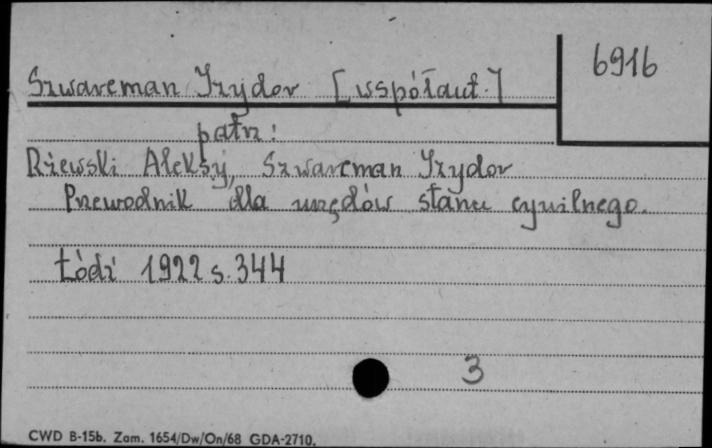 6916
Szwarcman Izydor [współaut.]
patrz:
Rżewski Aleksy, Szwarcman Izydor
Przewodnik dla urzędów stanu cywilnego.
Łódź 1922 s. 344
3
CWD B-15b. Zam. 1654/Dw/On/68 GDA-2710.